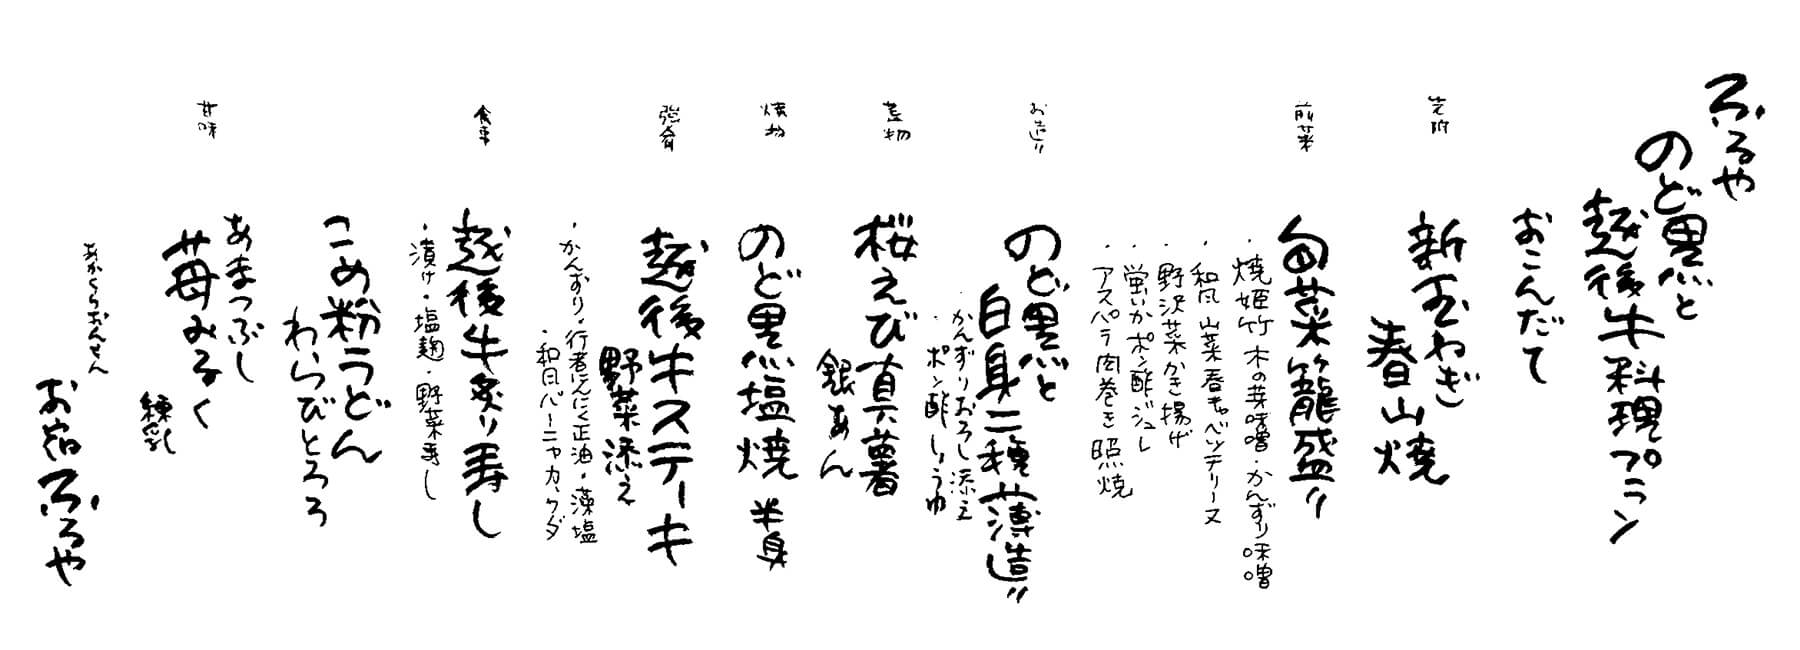 ふるや
のど黒と
越後牛料理プラン
おこんだて
先附
新玉ねぎ
春山焼
前菜
旬菜籠盛り
・焼姫竹 木の芽味噌・かんずり味噌
・和風 山菜春キャベツテリーヌ
・野沢菜かき揚げ
・蛍いかポン酢ジュレ
・アスペラ肉巻き照焼
お造り
のど黒と
白身二種薄造り
・かんずりおろし添え
・ポン酢しょうゆ
蓋物
桜えび真薯
銀あん
焼物
のど黒塩焼 半身
強肴
越後牛ステーキ
野菜添え
・かんずり・行者にんにく正油・藻塩
・和風バーニャカウダ
食事
越後牛炙り寿し
・漬け・塩麹・野菜寿し
こめ粉うどん
わらびとろろ
甘味
あまつぶし
苺みるく
練乳
あかくらおんせん
お宿ふるや